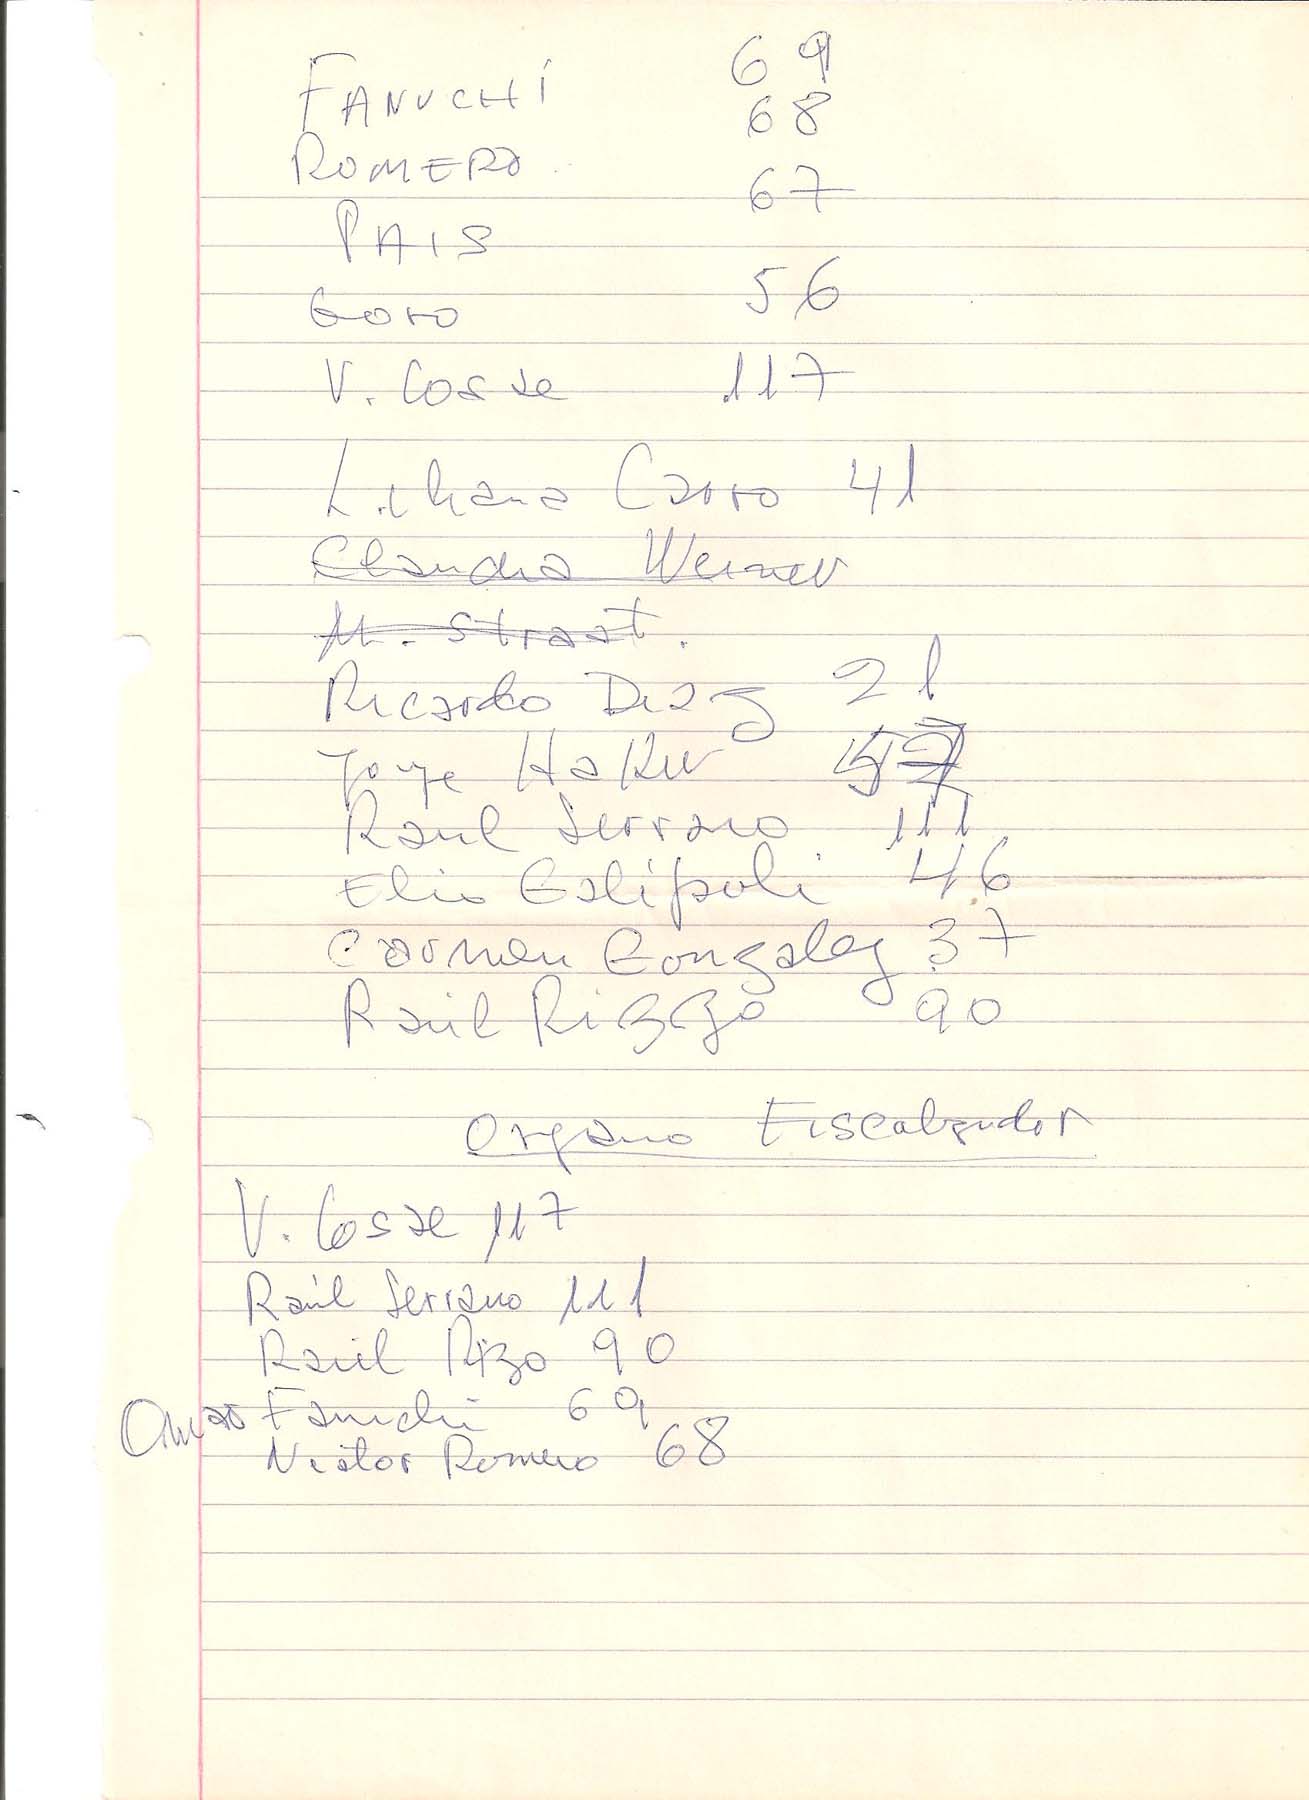 FANUCHI 69
ROMERO 68
PAIS 67
Goro 56
V. Cosse 117
Liliana Carro 41
Claudia Werner
M. Straat.
Ricardo Diaz 21
Jorge Haker 57
Raul Serrano 111
Elio Galípoli 46
Carmen Gonzalez 37
Raúl Rizzo 90
Organo Fiscalizador
V. Cosse 117
Raúl Serrano 111
Raúl Rizo 90
Omar Fanuchi 69
Nestor Romero 68